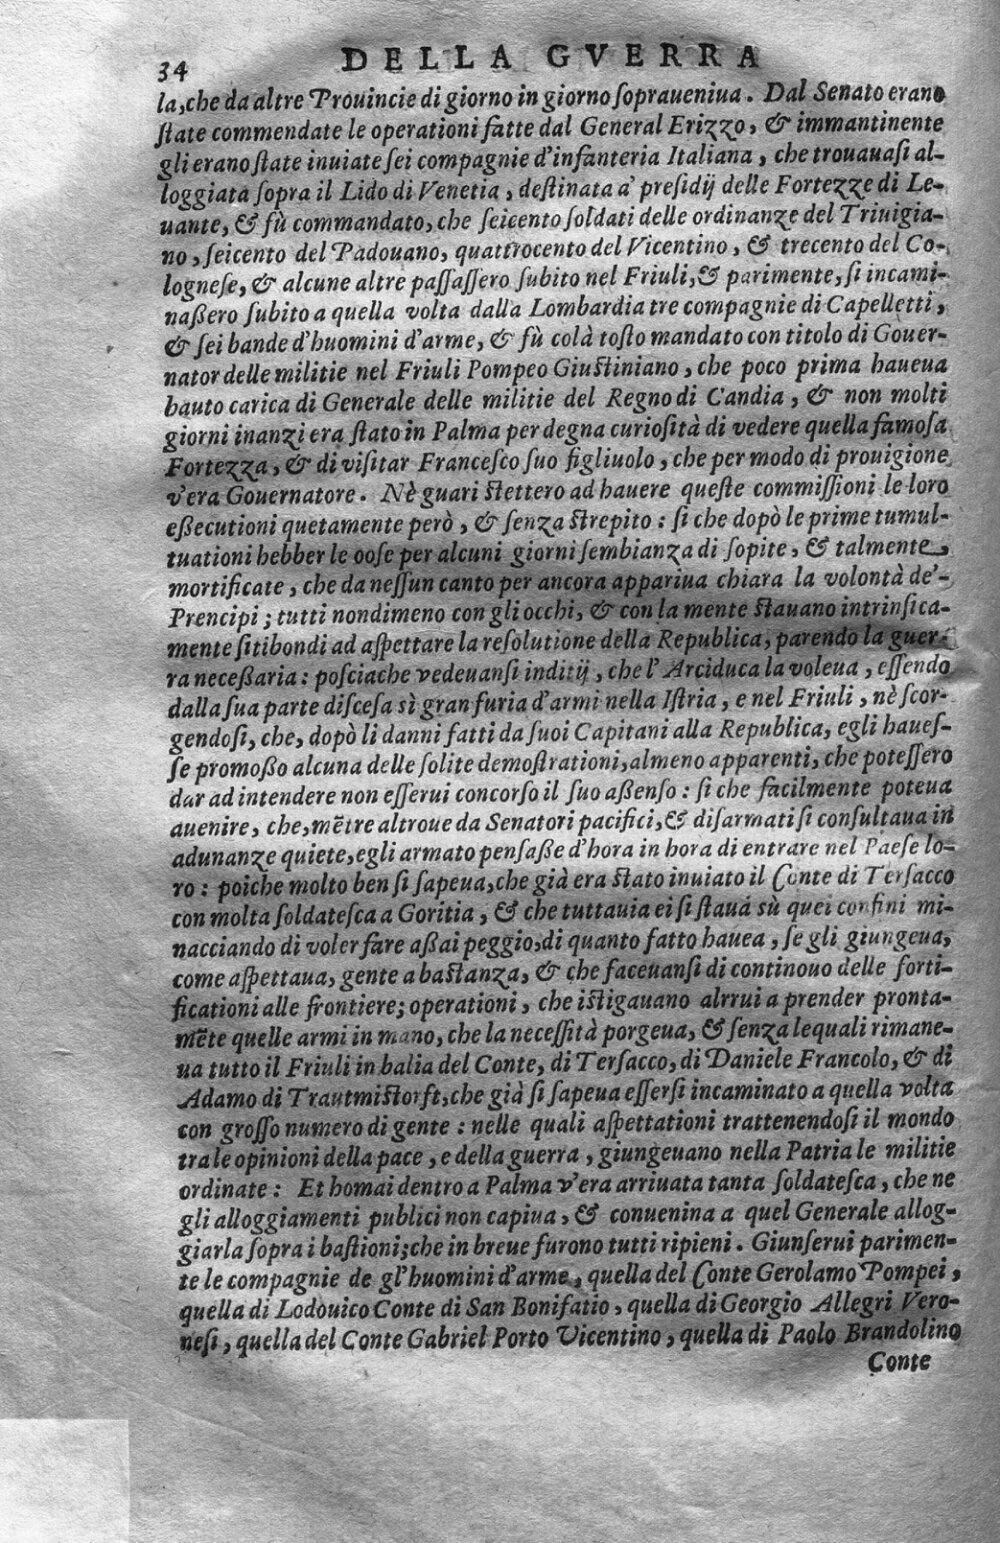 34 DELLA GVERRA
la, che da altre Prouincie di giorno in giorno ſopraueniua. Dal Senato erano
ſtate commendate le operationi fatte dal General Erizzo, & immantinente
gli erano ſtate inuiate ſei compagnie d'infanteria Italiana, che trouauaſi al-
loggiata ſopra il Lido di Venetia, deſtinata a' preſidij delle Fortezze di Le-
uante, & fù commandato, che ſeicento ſoldati delle ordinanze del Triuigia-
no, ſeicento del Padouano, quattrocento del Vicentino, & trecento del Co-
logneſe, & alcune altre paſſaſſero ſubito nel Friuli, & parimente, ſi incami-
naßero ſubito a quella volta dalla Lombardia tre compagnie di Capelletti,
& ſei bande d'huomini d'arme, & fù colà toſto mandato con titolo di Gouer-
nator delle militie nel Friuli Pompeo Giuſtiniano, che poco prima haueua
hauto carica di Generale delle militie del Regno di Candia, & non molti
giorni inanzi era ſtato in Palma per degna curioſità di vedere quella famoſa
Fortezza, & di viſitar Franceſco ſuo figliuolo, che per modo di prouigione
v'era Gouernatore. Nè guari ſtettero ad hauere queſte commiſſioni le loro
eßecutioni quetamente però, & ſenza ſtrepito: ſi che dopò le prime tumul-
tuationi hebber le ooſe per alcuni giorni ſembianza di ſopite, & talmente,
mortificate, che da neſſun canto per ancora appariua chiara la volontà de'-
Prencipi; tutti nondimeno con gli occhi, & con la mente ſtauano intrinſica-
mente ſitibondi ad aſpettare la reſolutione della Republica, parendo la guer-
ra neceßaria: poſciache vedeuanſi inditij, che l'Arciduca la voleua, eſſendo
dalla ſua parte diſceſa sì gran furia d'armi nella Iſtria, e nel Friuli, nè ſcor-
gendoſi, che, dopò li danni fatti da ſuoi Capitani alla Republica, egli haueſ-
ſe promoßo alcuna delle ſolite demoſtrationi, almeno apparenti, che poteſſero
dar ad intendere non eſſerui concorſo il ſuo aßenſo: ſi che facilmente poteua
auenire, che, mẽtre altroue da Senatori pacifici, & diſarmati ſi conſultaua in
adunanze quiete, egli armato penſaße d'hora in hora di entrare nel Paeſe lo-
ro: poiche molto ben ſi ſapeua, che già era ſtato inuiato il Conte di Terſacco
con molta ſoldateſca a Goritia, & che tuttauia ei ſi ſtaua sù quei confini mi-
nacciando di voler fare aßai peggio, di quanto fatto hauea, ſe gli giungeua,
come aſpettaua, gente a baſtanza, & che faceuanſi di continouo delle forti-
ficationi alle frontiere; operationi, che iſtigauano alrrui a prender pronta-
mẽte quelle armi in mano, che la neceſſità porgeua, & ſenza lequali rimane-
ua tutto il Friuli in balia del Conte, di Terſacco, di Daniele Francolo, & di
Adamo di Trautmiſtorft, che già ſi ſapeua eſſerſi incaminato a quella volta
con groſſo numero di gente: nelle quali aſpettationi trattenendoſi il mondo
tra le opinioni della pace, e della guerra, giungeuano nella Patria le militie
ordinate: Et homai dentro a Palma v'era arriuata tanta ſoldateſca, che ne
gli alloggiamenti publici non capiua, & conuenina a quel Generale allog-
giarla ſopra i baſtioni; che in breue furono tutti ripieni. Giunſerui parimen-
te le compagnie de gl'huomini d'arme, quella del Conte Gerolamo Pompei,
quella di Lodouico Conte di San Bonifatio, quella di Georgio Allegri Vero-
neſi, quella del Conte Gabriel Porto Vicentino, quella di Paolo Brandolino
Conte